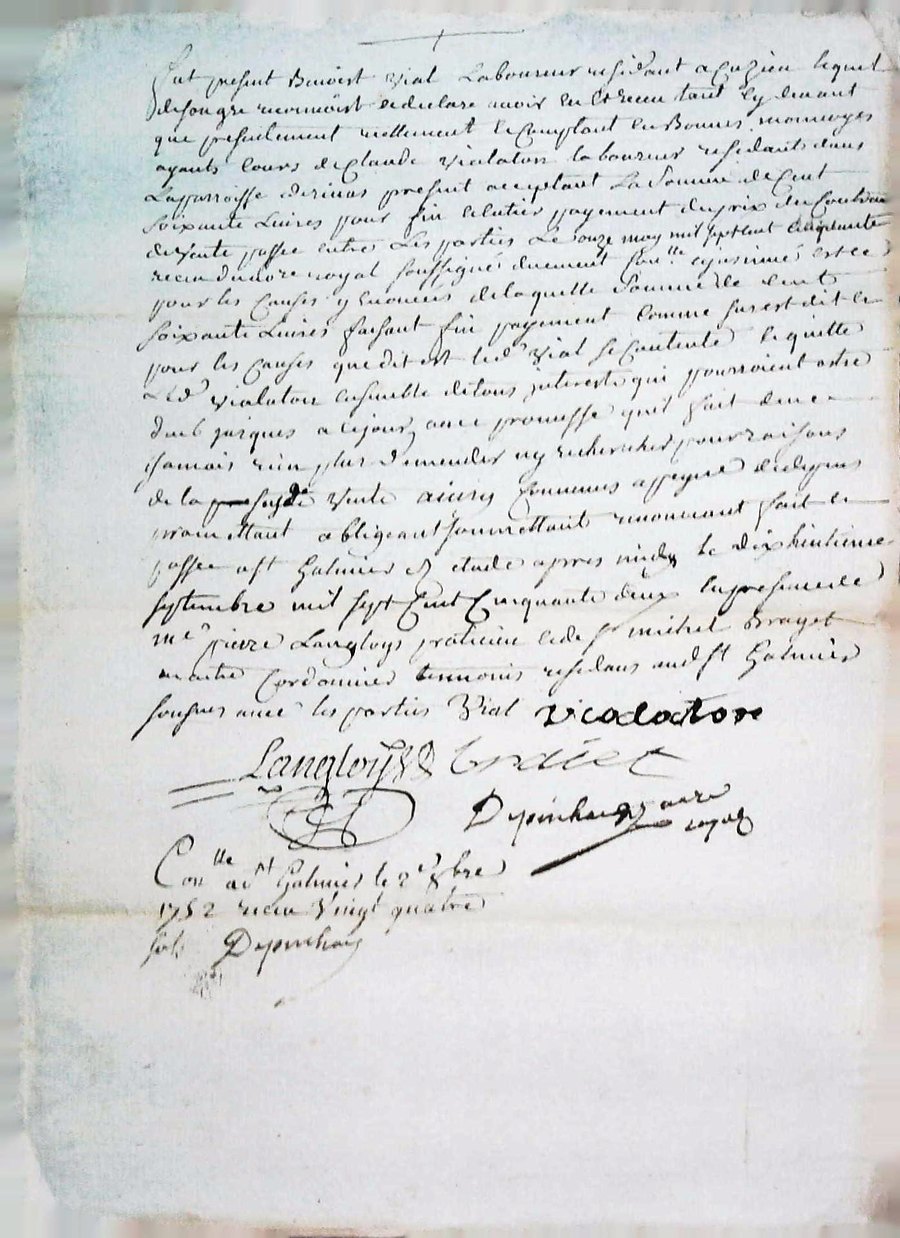 fut present Benoist Vial Laboureur residant a Cuzieu lequel
de son gre reconnoist et declare avoir eu et receu tant cy devant
que presentement reellement et comptant en Bonnes monnoyes
ayants cours de Claude Vialaton laboureur residant dans
La parroisse de rivas present acceptant La somme de Cent
soixante Livres pour fin et entier payement du prix du Contract
de vente passée entre Les parties Le onze may mil sept cent cinquante
receu du no.re royal soussigné duement Con.llé est ce
pour les Causes y enoncées de laquelle somme de Cent
soixante Livres faisant fin payement comme sus est dit et
pour les Causes que dit est led. Vial se Contente et quitte
Led. Vialaton ensemble de tous interests qui pourroient estre
deub jusques a ce jour, avec promesse qu'il fait de ne
jamais rien plus demender ny rechercher pour raisons
de la vente ainsy Convenus a peyne de depens
promettant obligeant soumettant renonçant fait et
passée a st Galmier etude apres midy le dix huitieme
septembre mil sept Cent Cinquante deux en presence de
me. pierre Langloys praticien et de sr. michel Brayet
maitre Cordonnier temoins residans aud. st Galmier
sousignes avec les parties Vial vialaton
Langloys
Depinhac no.re
royal
Con.llé a st Galmier le 2e 8bre
1752 receu Vingt quatre
sols Depinhac